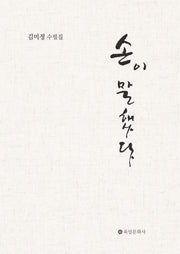 김미정 수필집
손이 말했다
육일문화사